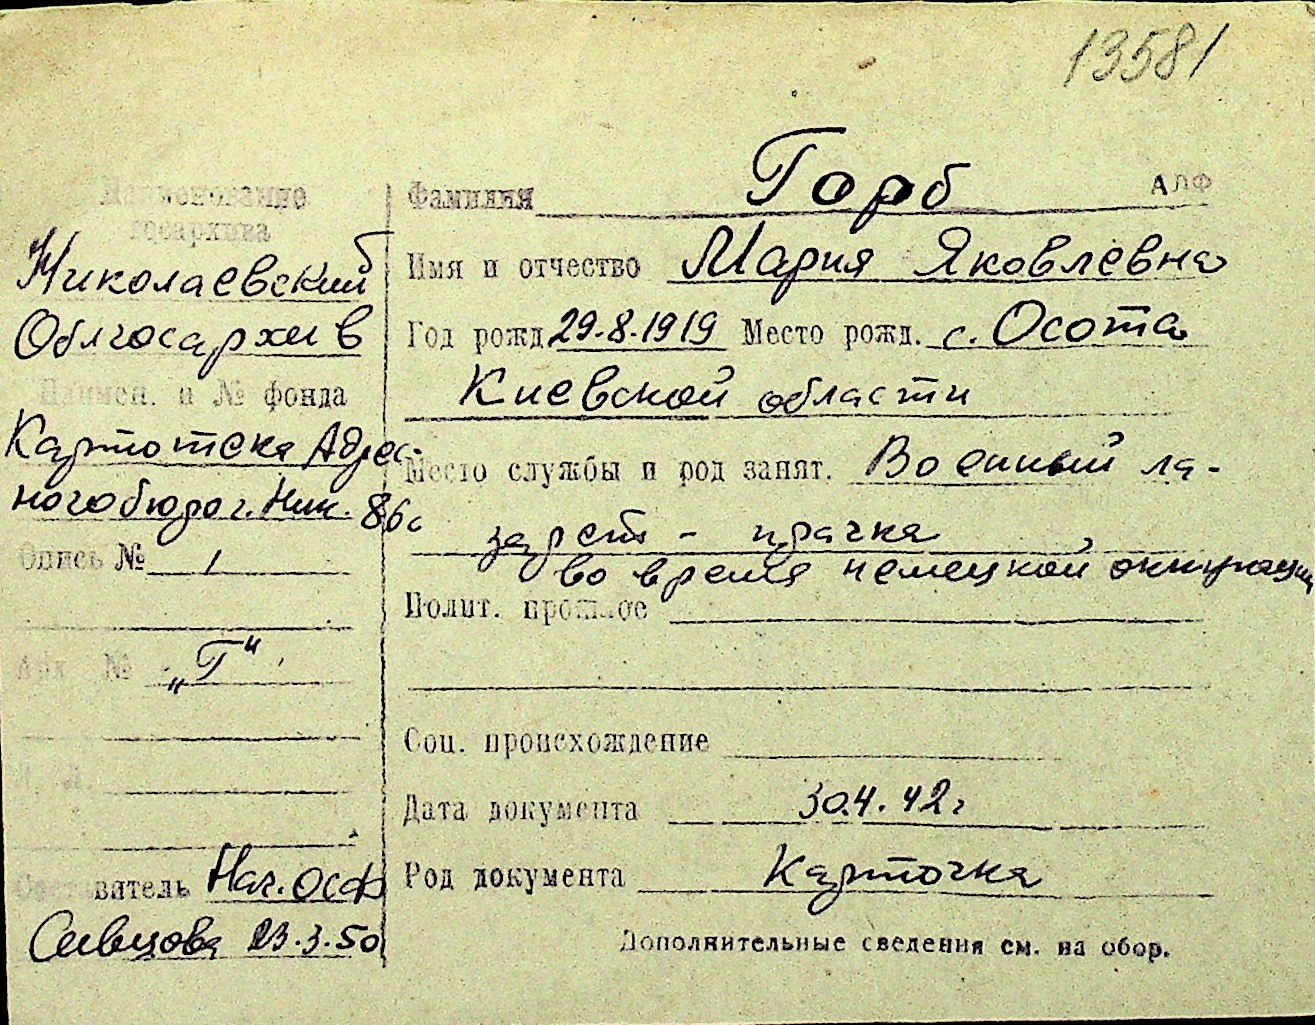 13581
Наименование
госархива
Николаевский
Облгосархив
Наимен. и № фонда
Картотека Адрес-
ного бюро г. Ник. 86с
Опись № 1
Арх. № „Г"
Составитель Нач. ОСФ
Сивцова 23.3.50
Фамилия Горб АЛФ
Имя и отчество Мария Яковлевна
Год рожд 29.8.1919 Место рожд. с. Осота
Киевской области
Место службы и род занят. Военный ла-
зарет - прачка
во время немецкой оккупации
Полит. прошлое
Соц. происхождение
Дата документа 30.4.42г
Род документа Карточка
Дополнительные сведения см. на обор.